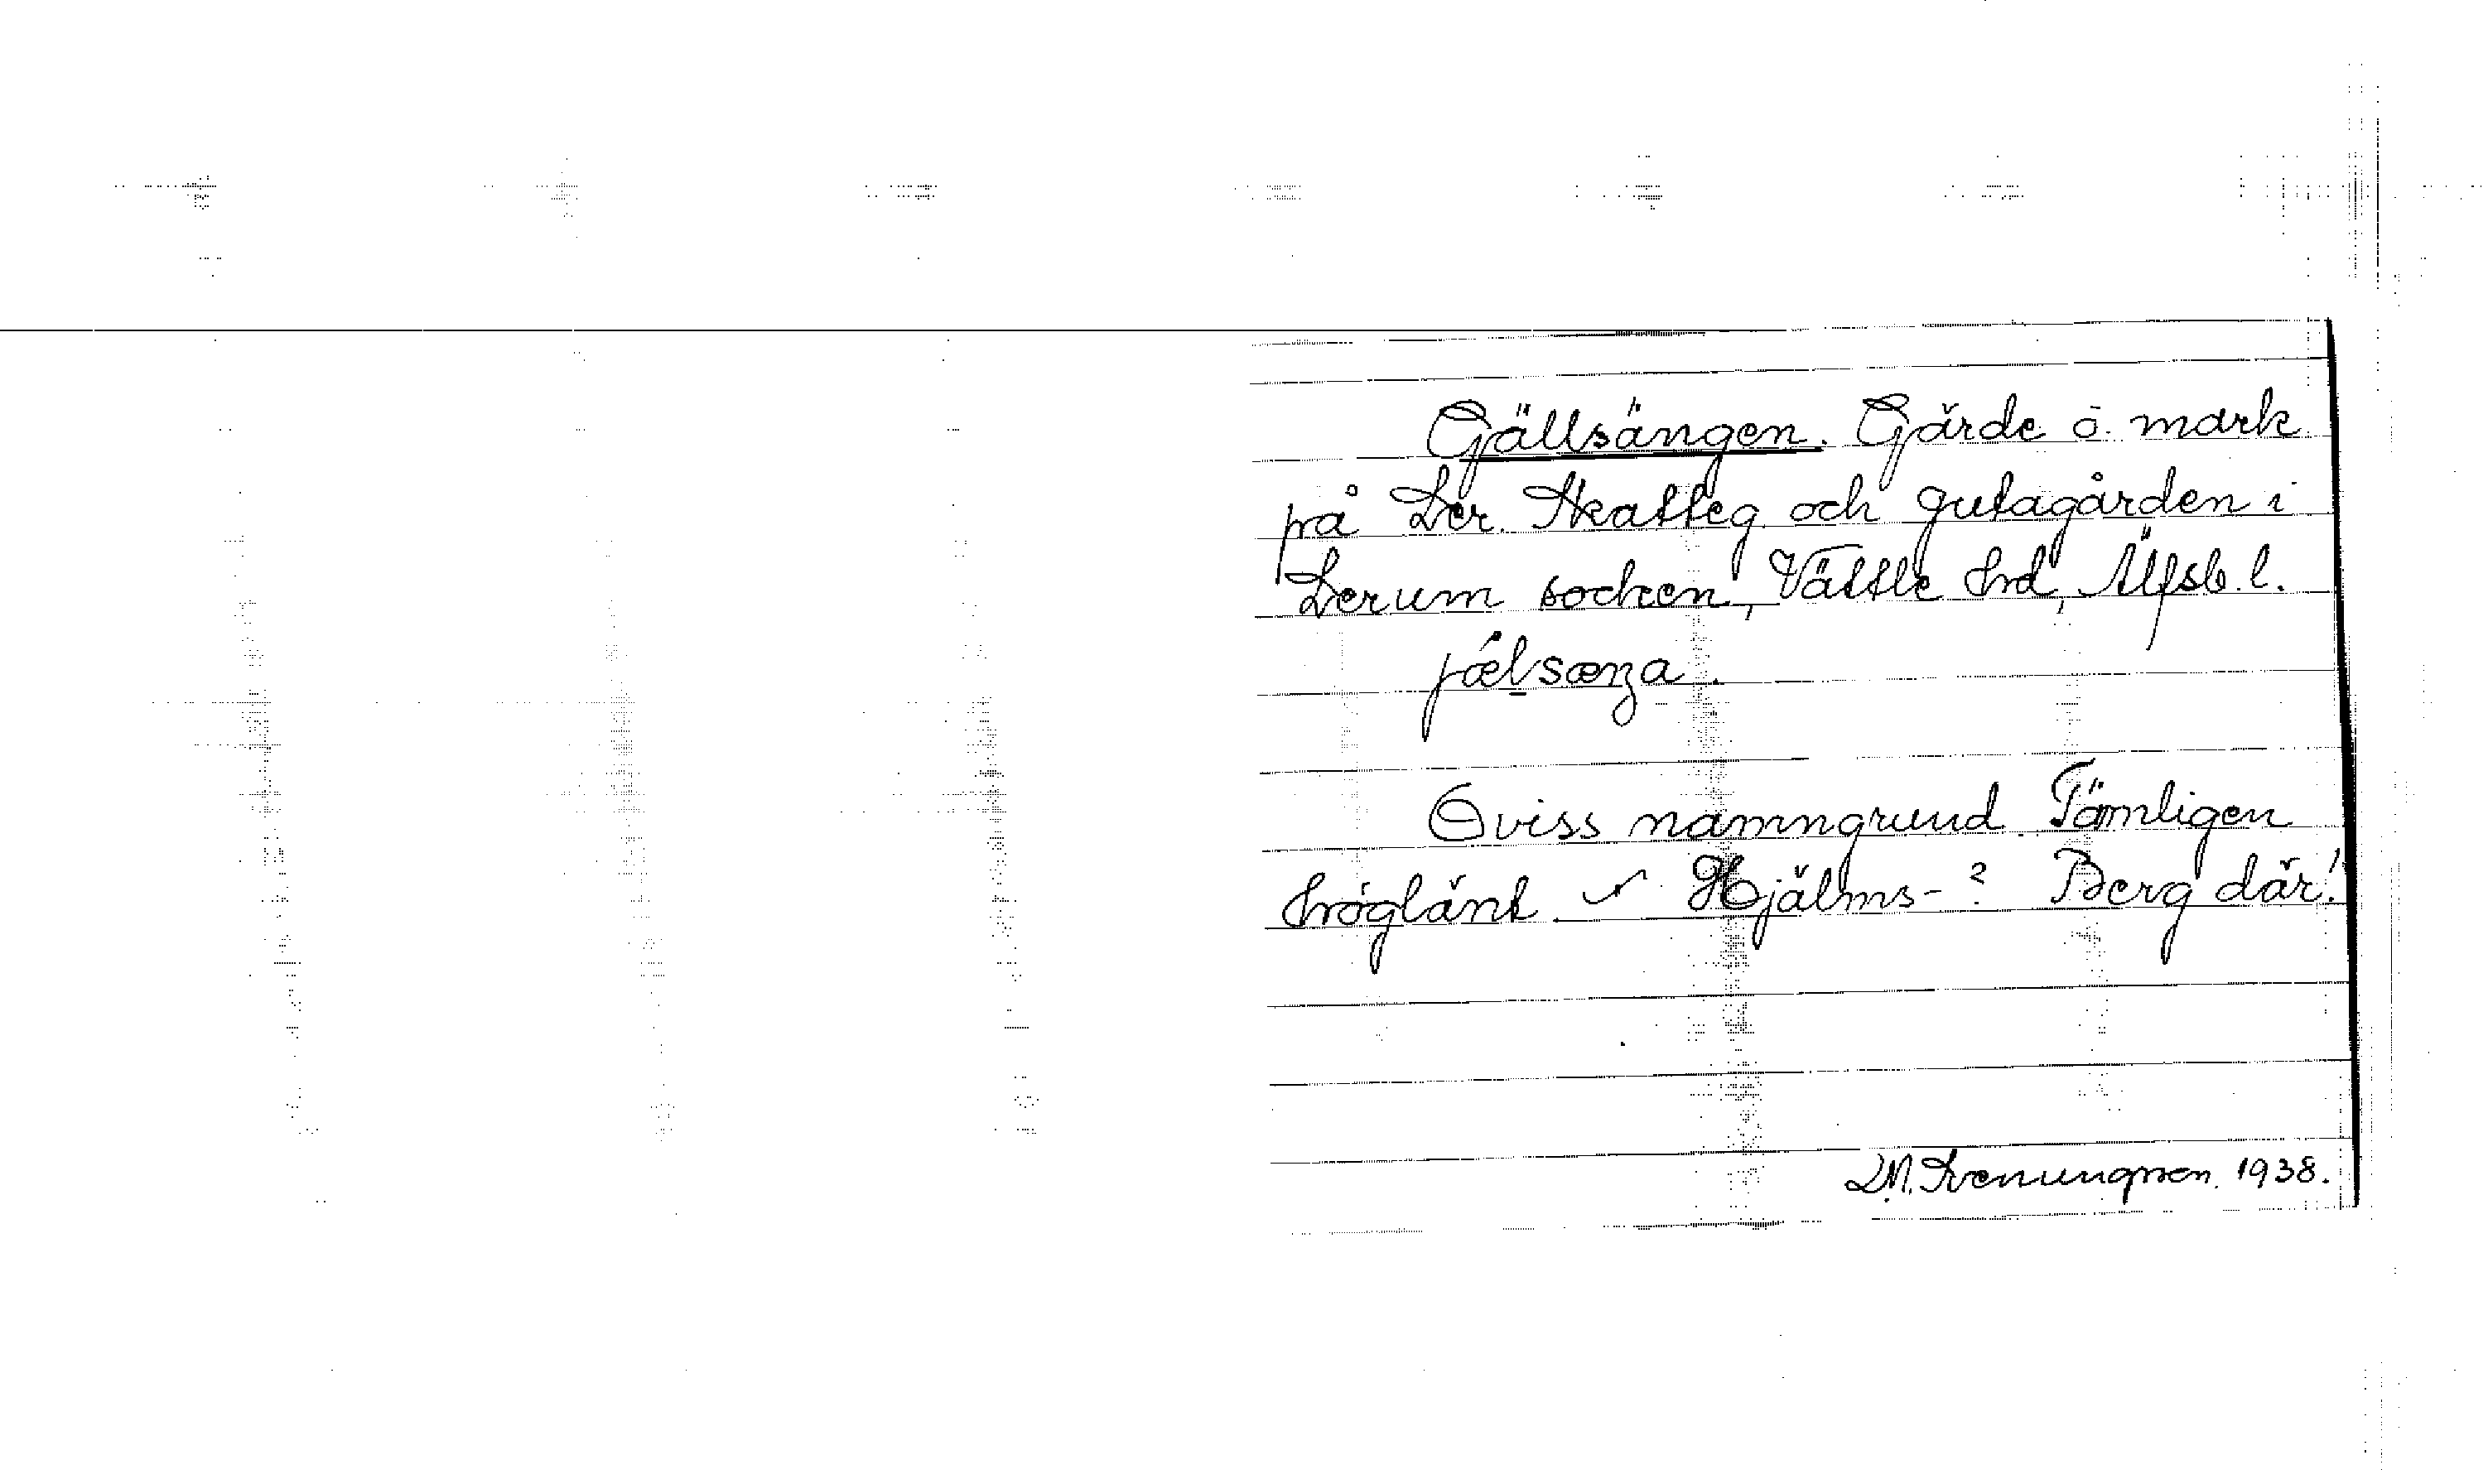 Gjällsängen. Gärde o. mark
på Ler. Skatteg och gutagården i
Lerum socken, Vättle hrd, Älfsb. l.
jælsænga.
Oviss namngrund. Tämligen
höglänt. Hjälms-? Berg där!
1938.